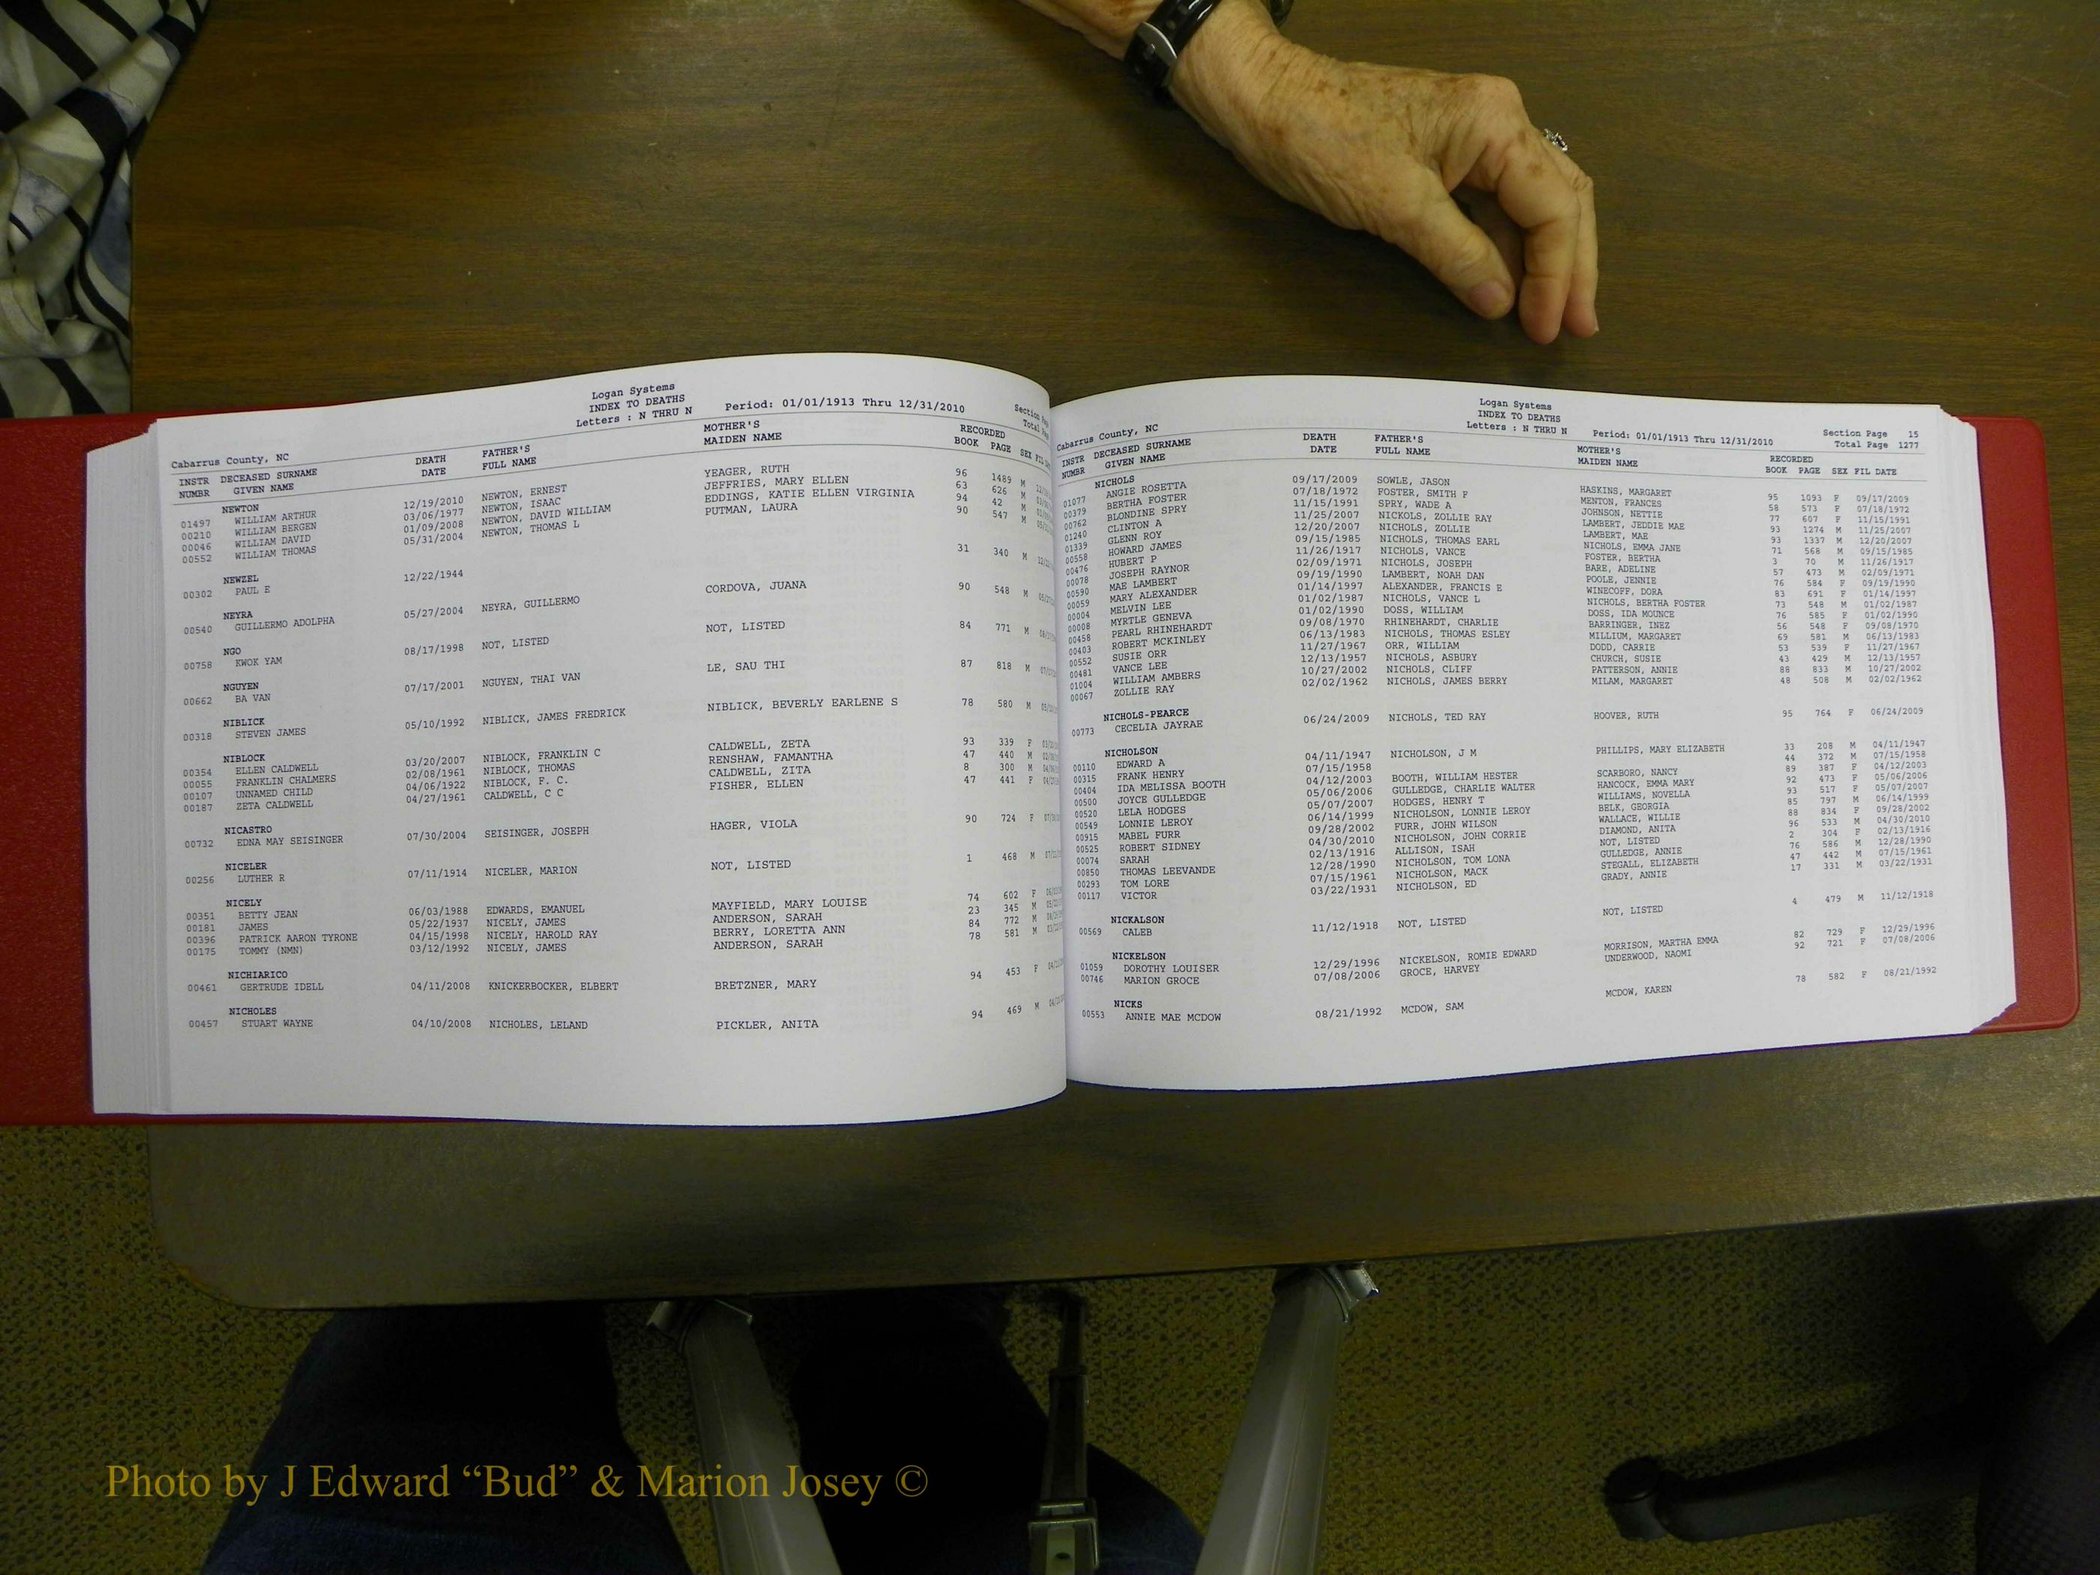 Logan Systems
INDEX TO DEATHS
Letters : N THRU N Period: 01/01/1913 Thru 12/31/2010 Section Page
Cabarrus County, NC Total Page
INSTR DECEASED SURNAME DEATH FATHER'S MOTHER'S RECORDED
NUMBR GIVEN NAME DATE FULL NAME MAIDEN NAME BOOK PAGE SEX FIL
NEWTON
01497 WILLIAM ARTHUR 12/19/2010 NEWTON, ERNEST YEAGER, RUTH 96 1489 M
00210 WILLIAM BERGEN 03/06/1977 NEWTON, ISAAC JEFFRIES, MARY ELLEN 63 626 M
00046 WILLIAM DAVID 01/09/2008 NEWTON, DAVID WILLIAM EDDINGS, KATIE ELLEN VIRGINIA 94 42 M
00552 WILLIAM THOMAS 05/31/2004 NEWTON, THOMAS L PUTMAN, LAURA 90 547 M
NEWZEL
00302 PAUL E 12/22/1944 31 340 M
NEYRA
00540 GUILLERMO ADOLPHA 05/27/2004 NEYRA, GUILLERMO CORDOVA, JUANA 90 548 M
NGO
00758 KWOK YAM 08/17/1998 NOT, LISTED NOT, LISTED 84 771 M
NGUYEN
00662 BA VAN 07/17/2001 NGUYEN, THAI VAN LE, SAU THI 87 818 M
NIBLICK
00318 STEVEN JAMES 05/10/1992 NIBLICK, JAMES FREDRICK NIBLICK, BEVERLY EARLENE S 78 580 M
NIBLOCK
00354 ELLEN CALDWELL 03/20/2007 NIBLOCK, FRANKLIN C CALDWELL, ZETA 93 339 F
00055 FRANKLIN CHALMERS 02/08/1961 NIBLOCK, THOMAS RENSHAW, FAMANTHA 47 440 M
00107 UNNAMED CHILD 04/06/1922 NIBLOCK, F. C. CALDWELL, ZITA 8 300 M
00187 ZETA CALDWELL 04/27/1961 CALDWELL, C C FISHER, ELLEN 47 441 F
NICASTRO
00732 EDNA MAY SEISINGER 07/30/2004 SEISINGER, JOSEPH HAGER, VIOLA 90 724 F
NICELER
00256 LUTHER R 07/11/1914 NICELER, MARION NOT, LISTED 1 468 M
NICELY
00351 BETTY JEAN 06/03/1988 EDWARDS, EMANUEL MAYFIELD, MARY LOUISE 74 602 F
00181 JAMES 05/22/1937 NICELY, JAMES ANDERSON, SARAH 23 345 M
00396 PATRICK AARON TYRONE 04/15/1998 NICELY, HAROLD RAY BERRY, LORETTA ANN 84 772 M
00175 TOMMY (NMN) 03/12/1992 NICELY, JAMES ANDERSON, SARAH 78 581 M
NICHIARICO
00461 GERTRUDE IDELL 04/11/2008 KNICKERBOCKER, ELBERT BRETZNER, MARY 94 453 F
NICHOLES
00457 STUART WAYNE 04/10/2008 NICHOLES, LELAND PICKLER, ANITA 94 469 M
Logan Systems
INDEX TO DEATHS
Letters : N THRU N Period: 01/01/1913 Thru 12/31/2010 Section Page 15
Cabarrus County, NC Total Page 1277
INSTR DECEASED SURNAME DEATH FATHER'S MOTHER'S RECORDED
NUMBR GIVEN NAME DATE FULL NAME MAIDEN NAME BOOK PAGE SEX FIL DATE
NICHOLS
01077 ANGIE ROSETTA 09/17/2009 SOWLE, JASON HASKINS, MARGARET 95 1093 F 09/17/2009
00379 BERTHA FOSTER 07/18/1972 FOSTER, SMITH F MENTON, FRANCES 58 573 F 07/18/1972
00762 BLONDINE SPRY 11/15/1991 SPRY, WADE A JOHNSON, NETTIE 77 607 F 11/15/1991
01240 CLINTON A 11/25/2007 NICKOLS, ZOLLIE RAY LAMBERT, JEDDIE MAE 93 1274 M 11/25/2007
01339 GLENN ROY 12/20/2007 NICHOLS, ZOLLIE LAMBERT, MAE 93 1337 M 12/20/2007
00558 HOWARD JAMES 09/15/1985 NICHOLS, THOMAS EARL NICHOLS, EMMA JANE 71 568 M 09/15/1985
00476 HUBERT P 11/26/1917 NICHOLS, VANCE FOSTER, BERTHA 3 70 M 11/26/1917
00078 JOSEPH RAYNOR 02/09/1971 NICHOLS, JOSEPH BARE, ADELINE 57 473 M 02/09/1971
00590 MAE LAMBERT 09/19/1990 LAMBERT, NOAH DAN POOLE, JENNIE 76 584 F 09/19/1990
00059 MARY ALEXANDER 01/14/1997 ALEXANDER, FRANCIS E WINECOFF, DORA 83 691 F 01/14/1997
00004 MELVIN LEE 01/02/1987 NICHOLS, VANCE L NICHOLS, BERTHA FOSTER 73 548 M 01/02/1987
00008 MYRTLE GENEVA 01/02/1990 DOSS, WILLIAM DOSS, IDA MOUNCE 76 585 F 01/02/1990
00458 PEARL RHINEHARDT 09/08/1970 RHINEHARDT, CHARLIE BARRINGER, INEZ 56 548 F 09/08/1970
00403 ROBERT MCKINLEY 06/13/1983 NICHOLS, THOMAS ESLEY MILLIUM, MARGARET 69 581 M 06/13/1983
00552 SUSIE ORR 11/27/1967 ORR, WILLIAM DODD, CARRIE 53 539 F 11/27/1967
00481 VANCE LEE 12/13/1957 NICHOLS, ASBURY CHURCH, SUSIE 43 429 M 12/13/1957
01004 WILLIAM AMBERS 10/27/2002 NICHOLS, CLIFF PATTERSON, ANNIE 88 833 M 10/27/2002
00067 ZOLLIE RAY 02/02/1962 NICHOLS, JAMES BERRY MILAM, MARGARET 48 508 M 02/02/1962
NICHOLS-PEARCE
00773 CECELIA JAYRAE 06/24/2009 NICHOLS, TED RAY HOOVER, RUTH 95 764 F 06/24/2009
NICHOLSON
00110 EDWARD A 04/11/1947 NICHOLSON, J M PHILLIPS, MARY ELIZABETH 33 208 M 04/11/1947
00315 FRANK HENRY 07/15/1958 44 372 M 07/15/1958
00404 IDA MELISSA BOOTH 04/12/2003 BOOTH, WILLIAM HESTER SCARBORO, NANCY 89 387 F 04/12/2003
00500 JOYCE GULLEDGE 05/06/2006 GULLEDGE, CHARLIE WALTER HANCOCK, EMMA MARY 92 473 F 05/06/2006
00520 LELA HODGES 05/07/2007 HODGES, HENRY T WILLIAMS, NOVELLA 93 517 F 05/07/2007
00549 LONNIE LEROY 06/14/1999 NICHOLSON, LONNIE LEROY BELK, GEORGIA 85 797 M 06/14/1999
00915 MABEL FURR 09/28/2002 FURR, JOHN WILSON WALLACE, WILLIE 88 834 F 09/28/2002
00525 ROBERT SIDNEY 04/30/2010 NICHOLSON, JOHN CORRIE DIAMOND, ANITA 96 533 M 04/30/2010
00074 SARAH 02/13/1916 ALLISON, ISAH NOT, LISTED 2 304 F 02/13/1916
00850 THOMAS LEEVANDE 12/28/1990 NICHOLSON, TOM LONA GULLEDGE, ANNIE 76 586 M 12/28/1990
00293 TOM LORE 07/15/1961 NICHOLSON, MACK STEGALL, ELIZABETH 47 442 M 07/15/1961
00117 VICTOR 03/22/1931 NICHOLSON, ED GRADY, ANNIE 17 331 M 03/22/1931
NICKALSON
00569 CALEB 11/12/1918 NOT, LISTED NOT, LISTED 4 479 M 11/12/1918
NICKELSON
01059 DOROTHY LOUISER 12/29/1996 NICKELSON, ROMIE EDWARD MORRISON, MARTHA EMMA 82 729 F 12/29/1996
00746 MARION GROCE 07/08/2006 GROCE, HARVEY UNDERWOOD, NAOMI 92 721 F 07/08/2006
NICKS
00553 ANNIE MAE MCDOW 08/21/1992 MCDOW, SAM MCDOW, KAREN 78 582 F 08/21/1992
Photo by J Edward “Bud” & Marion Josey ©